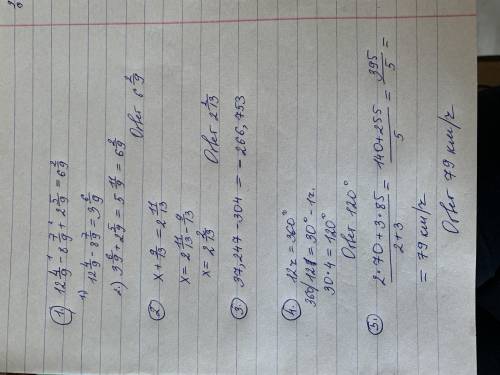 1. 12 4/9 - 8 7/9 + 2 5/9 = 6 2/9
1) 12 4/9 - 8 7/9 = 3 6/9
2) 3 6/9 + 2 5/9 = 5 11/9 = 6 2/9
Ответ 6 2/9
2. x + 9/13 = 2 11/13
x = 2 11/13 - 9/13
x = 2 2/13
Ответ 2 2/13
3. 37,247 - 304 = - 266,753
4. 12ч = 360°
360/12 = 30° - 1ч.
30 · 4 = 120°
Ответ 120°
5. (2·70 + 3·85)/(2+3) = (140+255)/5 = 395/5 =
= 79 км/ч
Ответ 79 км/ч